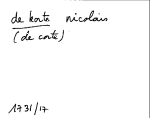 de korte nicolais
(de corte)
1731/17